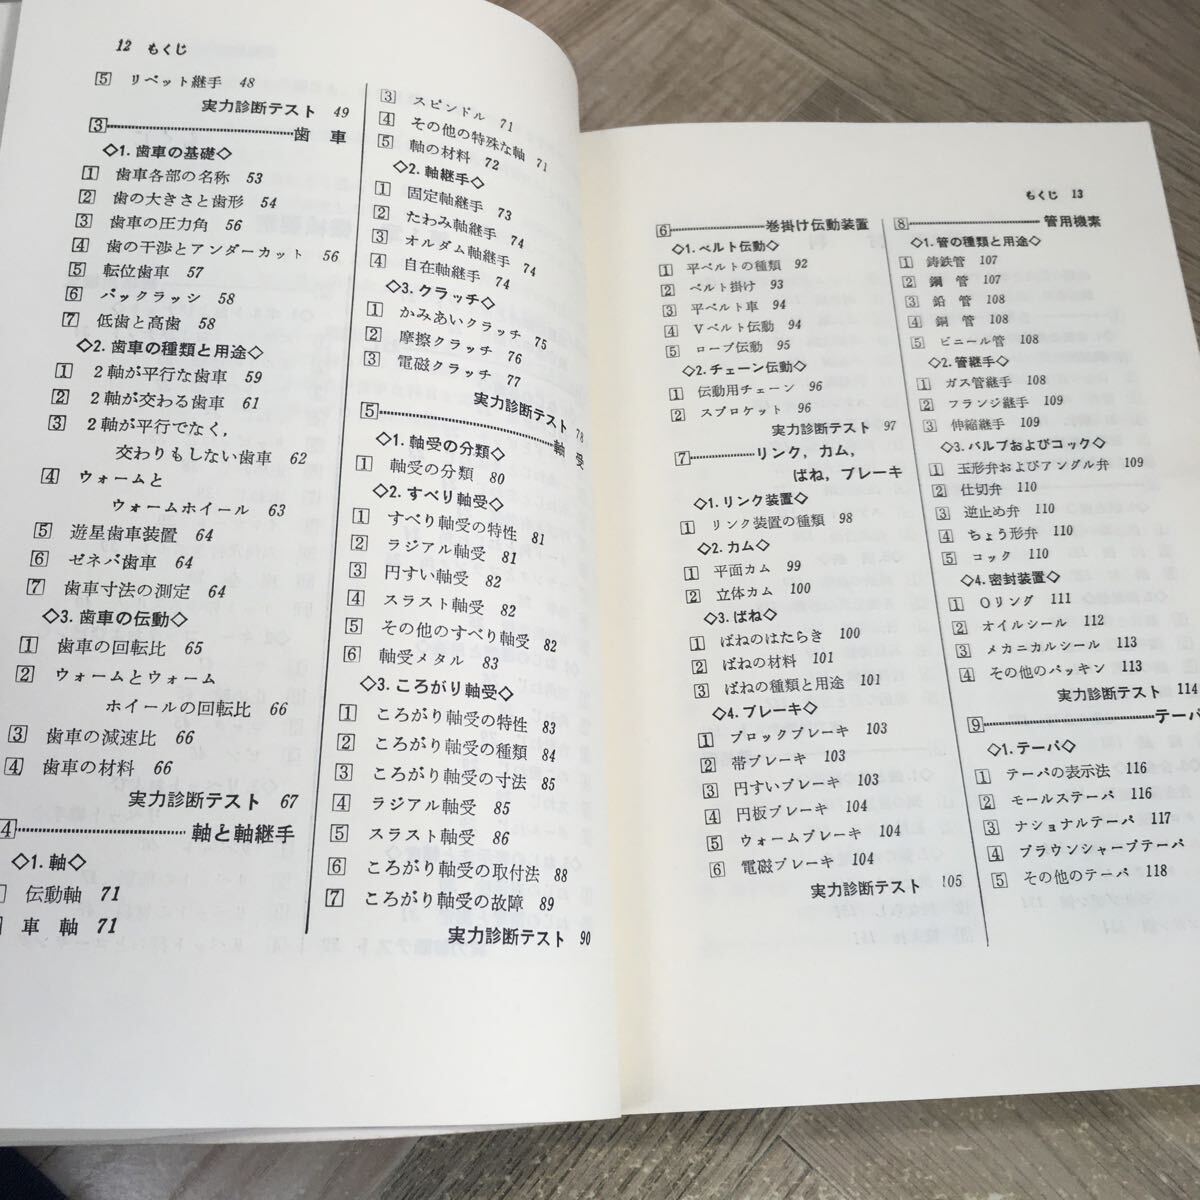 12 もくじ
5 リベット継手 48
実力診断テスト 49
3 歯車
◇1. 歯車の基礎◇
1 歯車各部の名称 53
2 歯の大きさと歯形 54
3 歯車の圧力角 56
4 歯の干渉とアンダーカット 56
5 転位歯車 57
6 バックラッシ 58
7 低歯と高歯 58
◇2. 歯車の種類と用途◇
1 2軸が平行な歯車 59
2 2軸が交わる歯車 61
3 2軸が平行でなく，
交わりもしない歯車 62
4 ウォームと
ウォームホイール 63
5 遊星歯車装置 64
6 ゼネバ歯車 64
7 歯車寸法の測定 64
◇3. 歯車の伝動◇
1 歯車の回転比 65
2 ウォームとウォーム
ホイールの回転比 66
3 歯車の減速比 66
4 歯車の材料 66
実力診断テスト 67
4 軸と軸継手
◇1. 軸◇
伝動軸 71
車軸 71
3 スピンドル 71
4 その他の特殊な軸 71
5 軸の材料 72
◇2. 軸継手◇
1 固定軸継手 73
2 たわみ軸継手 74
3 オルダム軸継手 74
4 自在軸継手 74
◇3. クラッチ◇
1 かみあいクラッチ 75
2 摩擦クラッチ 76
3 電磁クラッチ 77
実力診断テスト 78
5 軸受
◇1. 軸受の分類◇
1 軸受の分類 80
◇2. すべり軸受◇
1 すべり軸受の特性 81
2 ラジアル軸受 81
3 円すい軸受 82
4 スラスト軸受 82
5 その他のすべり軸受 82
6 軸受メタル 83
◇3. ころがり軸受◇
1 ころがり軸受の特性 83
2 ころがり軸受の種類 84
3 ころがり軸受の寸法 85
4 ラジアル軸受 85
5 スラスト軸受 86
6 ころがり軸受の取付法 88
7 ころがり軸受の故障 89
実力診断テスト 90
もくじ 13
6 巻掛け伝動装置
◇1. ベルト伝動◇
1 平ベルトの種類 92
2 ベルト掛け 93
3 平ベルト車 94
4 Vベルト伝動 94
5 ロープ伝動 95
◇2. チェーン伝動◇
1 伝動用チェーン 96
2 スプロケット 96
実力診断テスト 97
7 リンク，カム，
ばね，ブレーキ
◇1. リンク装置◇
1 リンク装置の種類 98
◇2. カム◇
1 平面カム 99
2 立体カム 100
◇3. ばね◇
1 ばねのはたらき 100
2 ばねの材料 101
3 ばねの種類と用途 101
◇4. ブレーキ◇
1 ブロックブレーキ 103
2 帯ブレーキ 103
3 円すいブレーキ 103
4 円板ブレーキ 104
5 ウォームブレーキ 104
6 電磁ブレーキ 104
実力診断テスト 105
8 管用機素
◇1. 管の種類と用途◇
1 鋳鉄管 107
2 鋼管 107
3 鉛管 108
4 銅管 108
5 ビニール管 108
◇2. 管継手◇
1 ガス管継手 108
2 フランジ継手 109
3 伸縮継手 109
◇3. バルブおよびコック◇
1 玉形弁およびアングル弁 109
2 仕切弁 110
3 逆止め弁 110
4 ちょう形弁 110
5 コック 110
◇4. 密封装置◇
1 Oリング 111
2 オイルシール 112
3 メカニカルシール 113
4 その他のパッキン 113
実力診断テスト 114
9 テーパ
◇1. テーパ◇
1 テーパの表示法 116
2 モールステーパ 116
3 ナショナルテーパ 117
4 ブラウンシャープテーパ
5 その他のテーパ 118